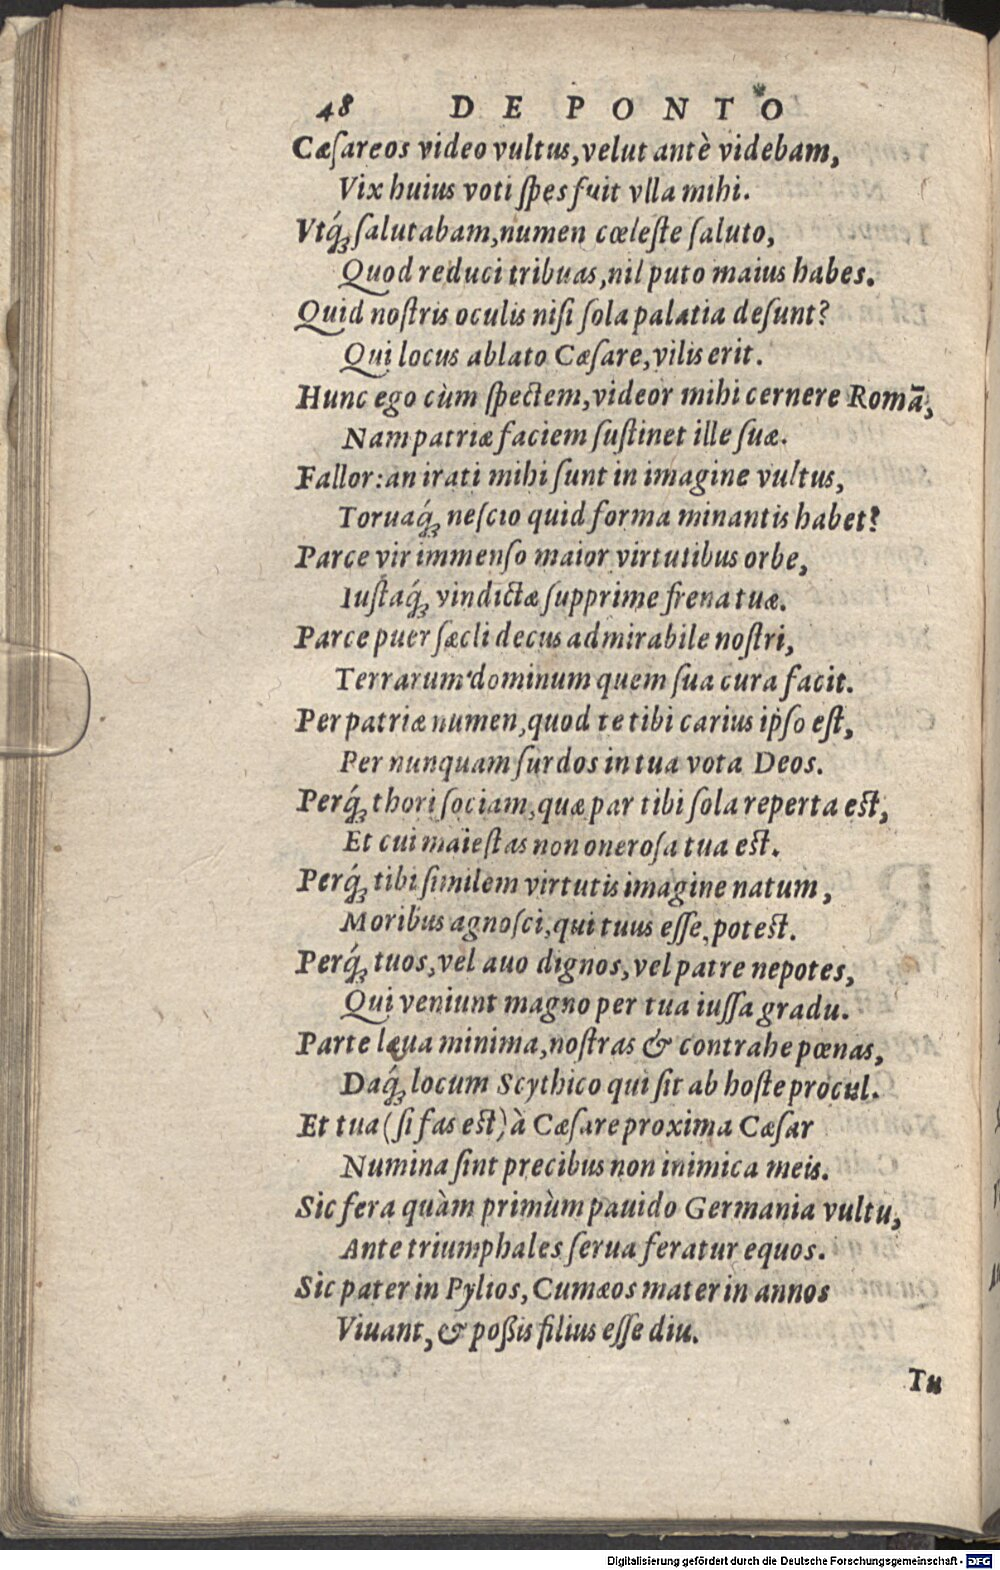 48 DE PONTO
Cæſareos video vultus, velut antè videbam,
Vix huius voti ſpes fuit vlla mihi.
Vtq́ꝫ ſalutabam, numen cœleſte ſaluto,
Quod reduci tribuas, nil puto maius habes.
Quid noſtris oculis niſi ſola palatia deſunt?
Qui locus ablato Cæſare, vilis erit.
Hunc ego cùm ſpectem, videor mihi cernere Romā,
Nam patriæ faciem ſuſtinet ille ſuæ.
Fallor: an irati mihi ſunt in imagine vultus,
Toruaq́ꝫ neſcio quid forma minantis habet?
Parce vir immenſo maior virtutibus orbe,
Iuſtaq́ꝫ vindictæ ſupprime frena tuæ.
Parce puer ſæcli decus admirabile noſtri,
Terrarum dominum quem ſua cura facit.
Per patriæ numen, quod te tibi carius ipſo eſt,
Per nunquam ſurdos in tua vota Deos.
Perq́ꝫ thori ſociam, quæ par tibi ſola reperta eſt,
Et cui maieſtas non oneroſa tua eſt.
Perq́ꝫ tibi ſimilem virtutis imagine natum,
Moribus agnoſci, qui tuus eſſe, poteſt.
Perq́ꝫ tuos, vel auo dignos, vel patre nepotes,
Qui veniunt magno per tua iuſſa gradu.
Parte leua minima, noſtras & contrahe pœnas,
Daq́ꝫ locum Scythico qui ſit ab hoſte procul.
Et tua (ſi fas eſt) à Cæſare proxima Cæſar
Numina ſint precibus non inimica meis.
Sic fera quàm primùm pauido Germania vultu,
Ante triumphales ſerua feratur equos.
Sic pater in Pylios, Cumæos mater in annos
Viuant, & poßis filius eſſe diu.
Tu
Digitalisierung gefördert durch die Deutsche Forschungsgemeinschaft - DFG